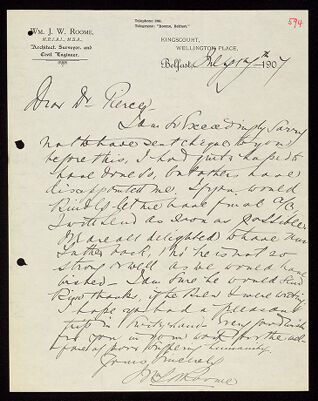 Telephone 194.
Telegrams: "Roome, Belfast."
594
WM. J. W. ROOME,
M.R.I.A.I., M.S.A.
Architect, Surveyor, and
Civil Engineer.
KINGSCOURT,
WELLINGTON PLACE,
Belfast, July 17th 1907
Dear Dr Pierce
I am so exceedingly sorry
not to have sent cheque to you
before this, I had quite hoped to
have done so, but others have
disappointed me. If you would
kindly let me have final a/c
I will send as soon as possible.
We are all delighted to have
father back, tho' he is not so
strong & well as we would have
wished - I am sure he would send
thanks, if he knew I were writing
I hope you had a pleasant
trip in Switzerland. Very good wishes
for you in your work for the
of poor suffering humanity.
Yours sincerely
Wm J W Roome